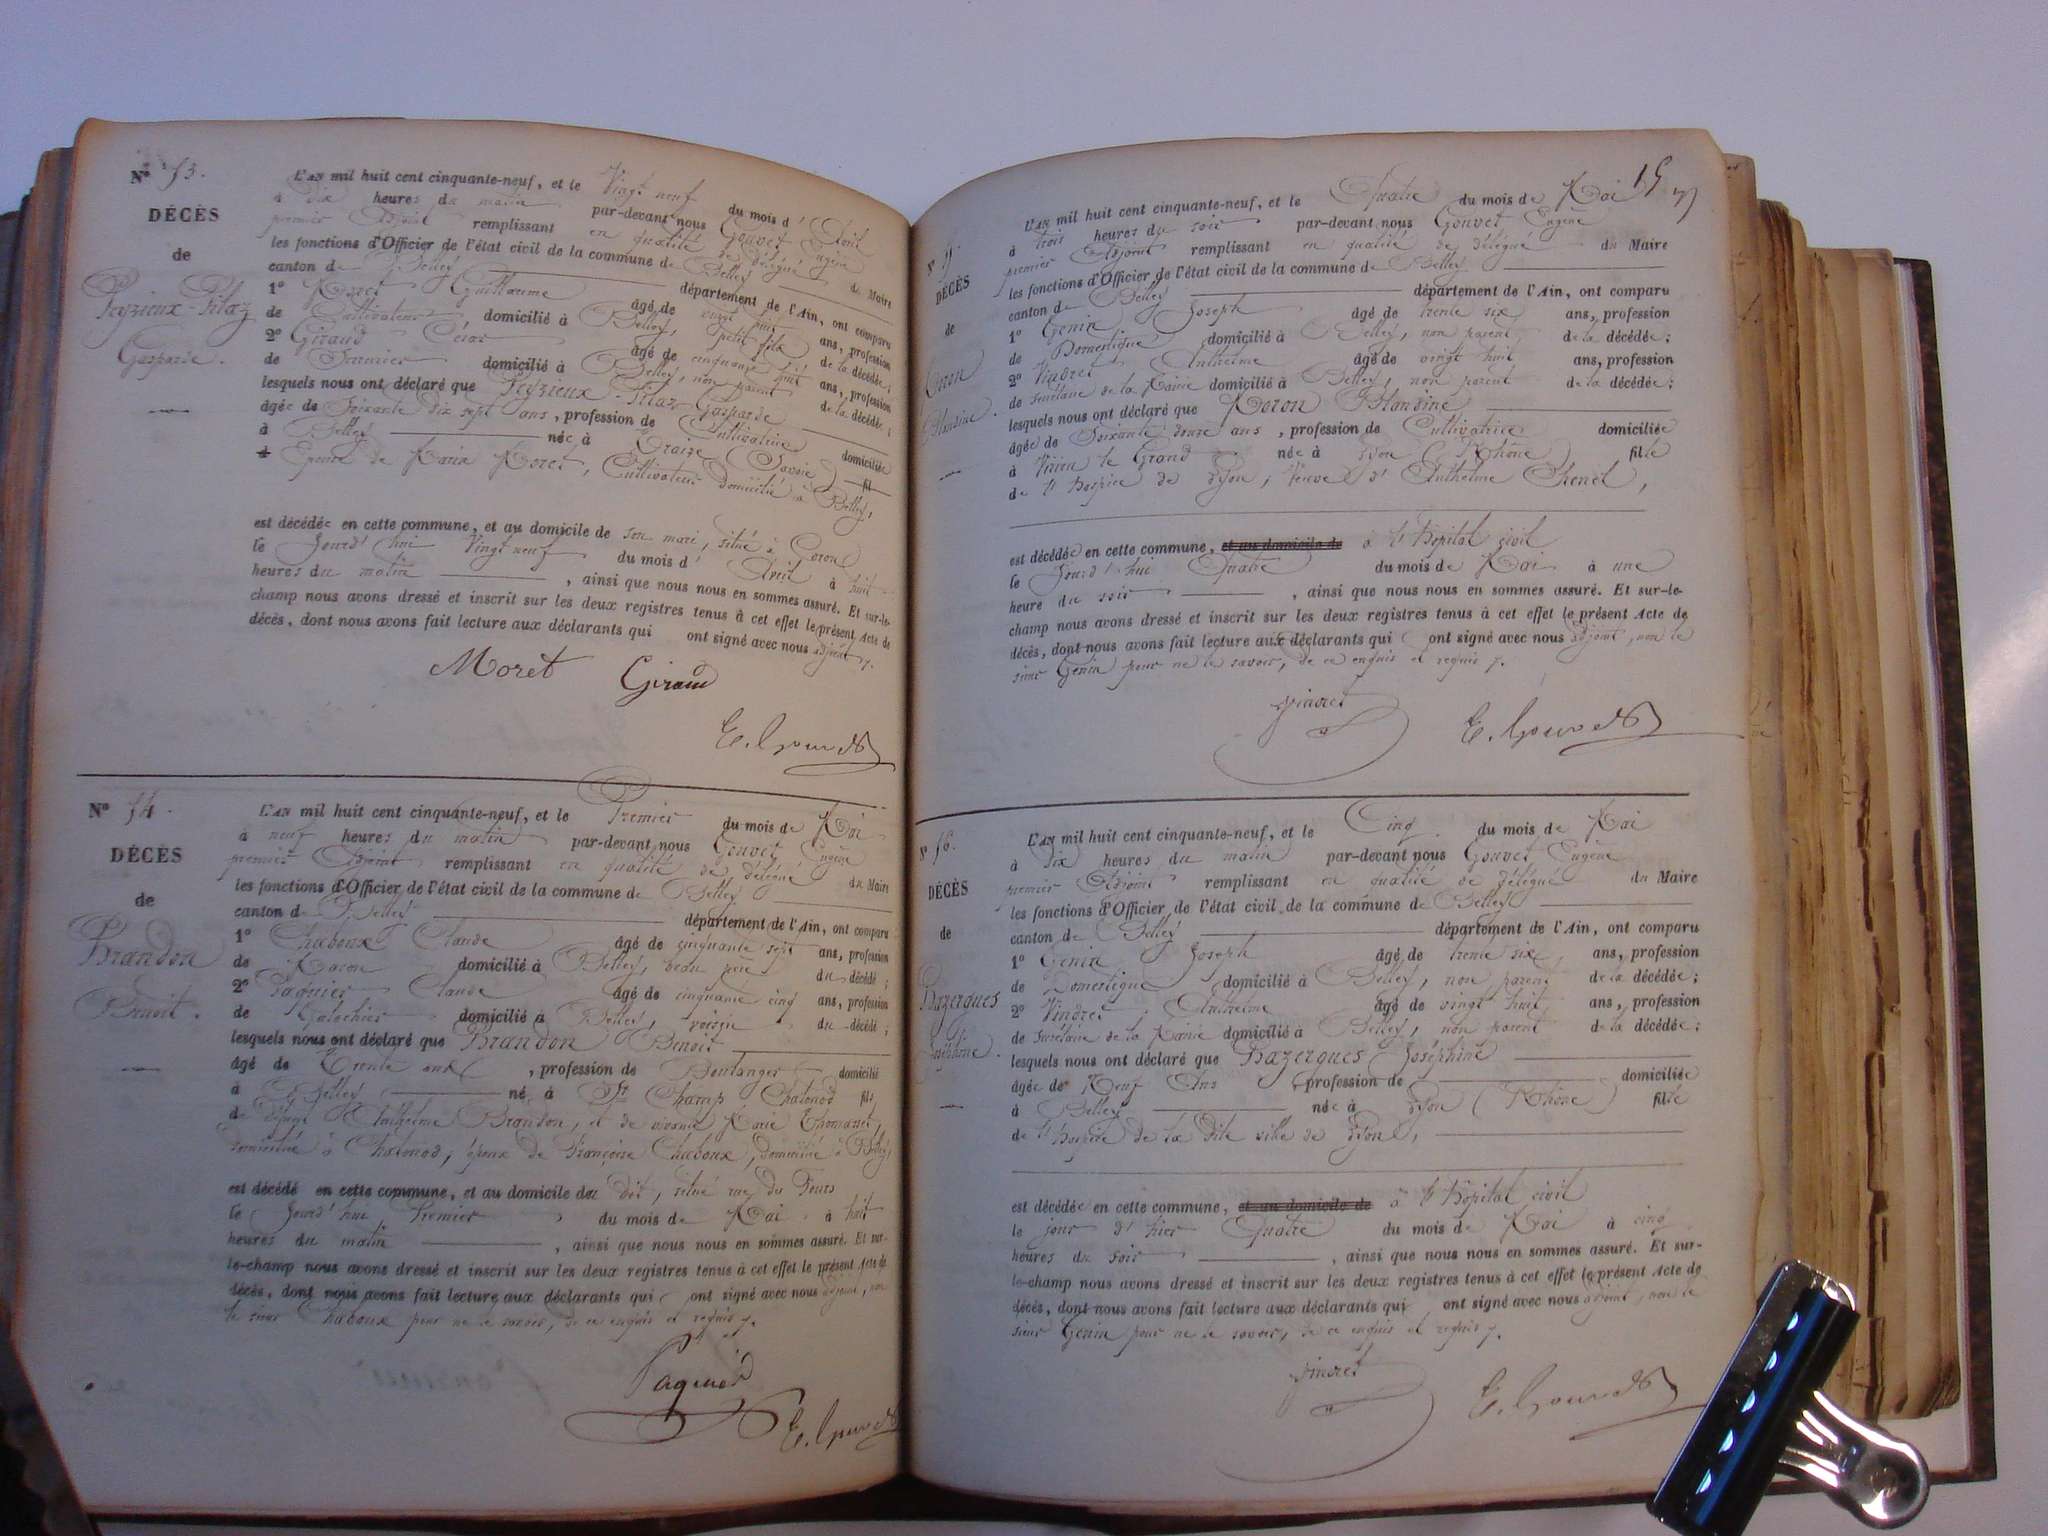 Nº 53.
DÉCÈS
de
Peyzieux-Pilaz
Gasparde.
L'AN mil huit cent cinquante-neuf, et le Vingt neuf du mois d'Avril
à Dix heures du matin par-devant nous Gouvet Eugène
premier Adjoint remplissant en qualité de délégué du Maire
les fonctions d'Officier de l'état civil de la commune de Belley
canton de Belley département de l'Ain, ont comparu
1º Moret Guillaume âgé de vingt huit ans, profession
de Cultivateur domicilié à Belley, petit fils de la décédée;
2º Giraud César âgé de cinquante huit ans, profession
de Fermier domicilié à Belley, non parent de la décédée;
lesquels nous ont déclaré que Peyzieux-Pilaz Gasparde
âgée de Soixante dix sept ans, profession de Cultivatrice domiciliée
à Belley née à Traize (Savoie) fil
Epouse de Moret, Cultivateur domicilié à Belley,
est décédée en cette commune, et au domicile de son mari, situé à Coron
le Jourd'hui Vingt neuf du mois d'Avril à huit
heures du matin, ainsi que nous nous en sommes assuré. Et sur-le-
champ nous avons dressé et inscrit sur les deux registres tenus à cet effet le présent Acte de
décès, dont nous avons fait lecture aux déclarants qui ont signé avec nous adjoint
Moret Giraud
E. Gouvet
Nº 54.
DÉCÈS
de
Brandon
Benoit.
L'AN mil huit cent cinquante-neuf, et le Premier du mois de Mai
à neuf heures du matin par-devant nous Gouvet Eugène
premier Adjoint remplissant en qualité de délégué du Maire
les fonctions d'Officier de l'état civil de la commune de Belley
canton de Belley département de l'Ain, ont comparu
1º Chaboux Claude âgé de cinquante sept ans, profession
de Maçon domicilié à Belley, beau père du décédé;
2º Paquier Claude âgé de cinquante cinq ans, profession
de Galochier domicilié à Belley, voisin du décédé;
lesquels nous ont déclaré que Brandon Benoit
âgé de Trente, profession de Boulanger domicilié
à Belley né à St Champ Chatonod fils
de défunt Anthelme Brandon, et de vivante Marie Thomasset,
domiciliée à Chatonod, époux de Françoise Chaboux, domiciliée à Belley,
est décédé en cette commune, et au domicile du dit, situé rue des Fours
le Jourd'hui Premier du mois de Mai à huit
heures du matin, ainsi que nous nous en sommes assuré. Et sur-
le-champ nous avons dressé et inscrit sur les deux registres tenus à cet effet le présent Acte de
décès, dont nous avons fait lecture aux déclarants qui ont signé avec nous adjoint, non
le sieur Chaboux pour ne le savoir, de ce enquis et requis
Paquier
E. Gouvet
15
Nº 55.
DÉCÈS
de
Moron
Blandine.
L'AN mil huit cent cinquante-neuf, et le Quatre du mois de Mai
à trois heures du soir par-devant nous Gouvet Eugène
premier Adjoint remplissant en qualité de délégué du Maire
les fonctions d'Officier de l'état civil de la commune de Belley
canton de Belley département de l'Ain, ont comparu
1º Genin Joseph âgé de trente six ans, profession
de Domestique domicilié à Belley, non parent de la décédée;
2º Vindret Anthelme âgé de vingt huit ans, profession
de secrétaire de la Mairie domicilié à Belley, non parent de la décédée;
lesquels nous ont déclaré que Moron Blandine
âgée de Soixante douze ans, profession de Cultivatrice domiciliée
à Virieu le Grand née à Lyon (Rhône) fille
de l'hospice de Lyon, Veuve d'Anthelme,
est décédée en cette commune, et au domicile de à l'Hôpital civil
le Jourd'hui Quatre du mois de Mai à une
heure du soir, ainsi que nous nous en sommes assuré. Et sur-le-
champ nous avons dressé et inscrit sur les deux registres tenus à cet effet le présent Acte de
décès, dont nous avons fait lecture aux déclarants qui ont signé avec nous adjoint, non le
sieur Genin pour ne le savoir, de ce enquis et requis
Vindret
E. Gouvet
Nº 56.
DÉCÈS
de
Bazergues
Joséphine.
L'AN mil huit cent cinquante-neuf, et le Cinq du mois de Mai
à Dix heures du matin par-devant nous Gouvet Eugène
premier Adjoint remplissant en qualité de délégué du Maire
les fonctions d'Officier de l'état civil de la commune de Belley
canton de Belley département de l'Ain, ont comparu
1º Genin Joseph âgé de trente six ans, profession
de Domestique domicilié à Belley, non parent de la décédée;
2º Vindret Anthelme âgé de vingt huit ans, profession
de Secrétaire de la Mairie domicilié à Belley, non parent de la décédée;
lesquels nous ont déclaré que Bazergues Joséphine
âgée de Neuf Ans, profession de domiciliée
à Belley née à Lyon (Rhône) fille
de l'hospice de la dite ville de Lyon,
est décédée en cette commune, et au domicile de à l'Hôpital civil
le jour d'hier Quatre du mois de Mai à cinq
heures du soir, ainsi que nous nous en sommes assuré. Et sur-
le-champ nous avons dressé et inscrit sur les deux registres tenus à cet effet le présent Acte de
décès, dont nous avons fait lecture aux déclarants qui ont signé avec nous adjoint, non le
sieur Genin pour ne le savoir, de ce enquis et requis
Vindret
E. Gouvet